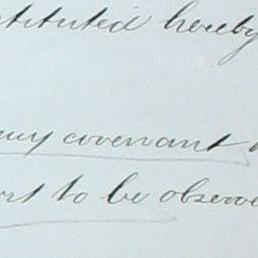 stituted hereby
any covenant
to be observe